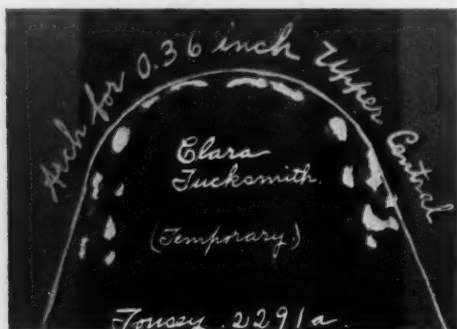 Arch for 0.36 inch Upper Central
Clara
Tucksmith.
(Temporary.)
Tousey. 2291a.